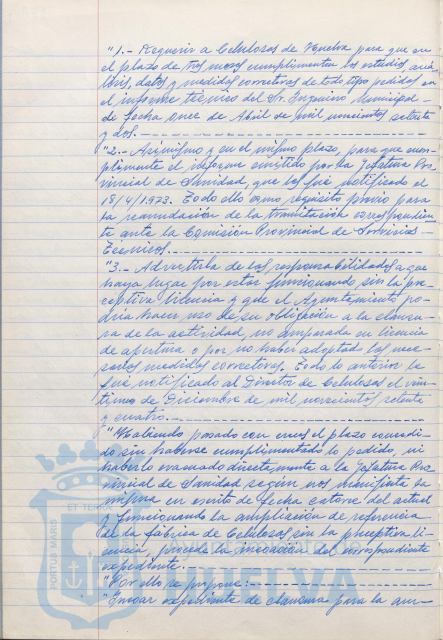 "1.- Requerir a Celulosas de Huelva para que en
el plazo de tres meses cumplimenten los estudios, aná-
lisis, datos y medidas correctoras de todo tipo pedidos en
el informe técnico del Sr. Ingeniero Municipal
de fecha once de Abril de mil novecientos setenta
y dos.
"2.- Asimismo y en el mismo plazo, para que cum-
plimente el informe emitido por la Jefatura Pro-
vincial de Sanidad, que les fué notificado el
18/4/1973. Todo ello como requisito previo para
la reanudación de la tramitación correspondien-
te ante la Comisión Provincial de Servicios
Técnicos.
"3.- Advertirle de las responsabilidades a que
haya lugar por estar funcionando sin la pre-
ceptiva licencia y que el Ayuntamiento po-
dría hacer uso de su obligación a la clausu-
ra de la actividad, no amparada en licencia
de apertura o por no haber adoptado las nece-
sarias medidas correctoras. Todo lo anterior le
fué notificado al Director de Celulosas el vein-
tiuno de Diciembre de mil novecientos setenta
y cuatro.
"Habiendo pasado con creces el plazo concedi-
do sin haberse cumplimentado lo pedido, ni
haberlo evacuado directamente a la Jefatura Pro-
vincial de Sanidad según nos manifiesta la
misma en escrito de fecha catorce del actual
y funcionando la ampliación de referencia
de la fábrica de Celulosas sin la preceptiva li-
cencia, procede la incoación del correspondiente
expediente.
"Por ello se propone:
"Incoar expediente de clausura para la am-
PORTUS MARIS
ET TER
HUELVA